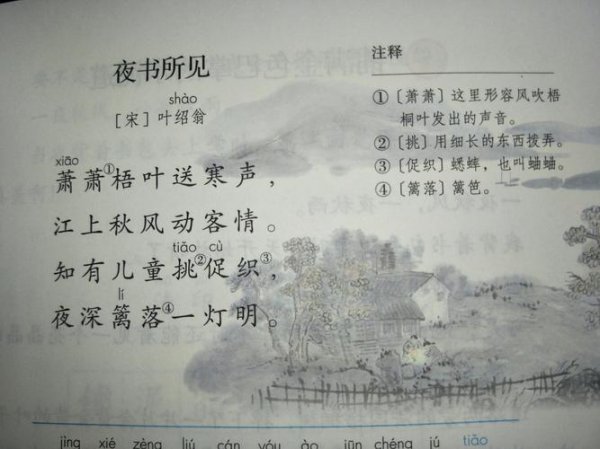 夜书所见
shào
[宋] 叶绍翁
xiāo
萧萧①梧叶送寒声，
江上秋风动客情。
tiǎo cù
知有儿童挑②促织③，
lí
夜深篱落④一灯明。
注释
①〔萧萧〕这里形容风吹梧
桐叶发出的声音。
②〔挑〕用细长的东西拨弄。
③〔促织〕蟋蟀，也叫蛐蛐。
④〔篱落〕篱笆。
jìng xié zèng liú cán yóu ào jūn chéng jú tiǎo